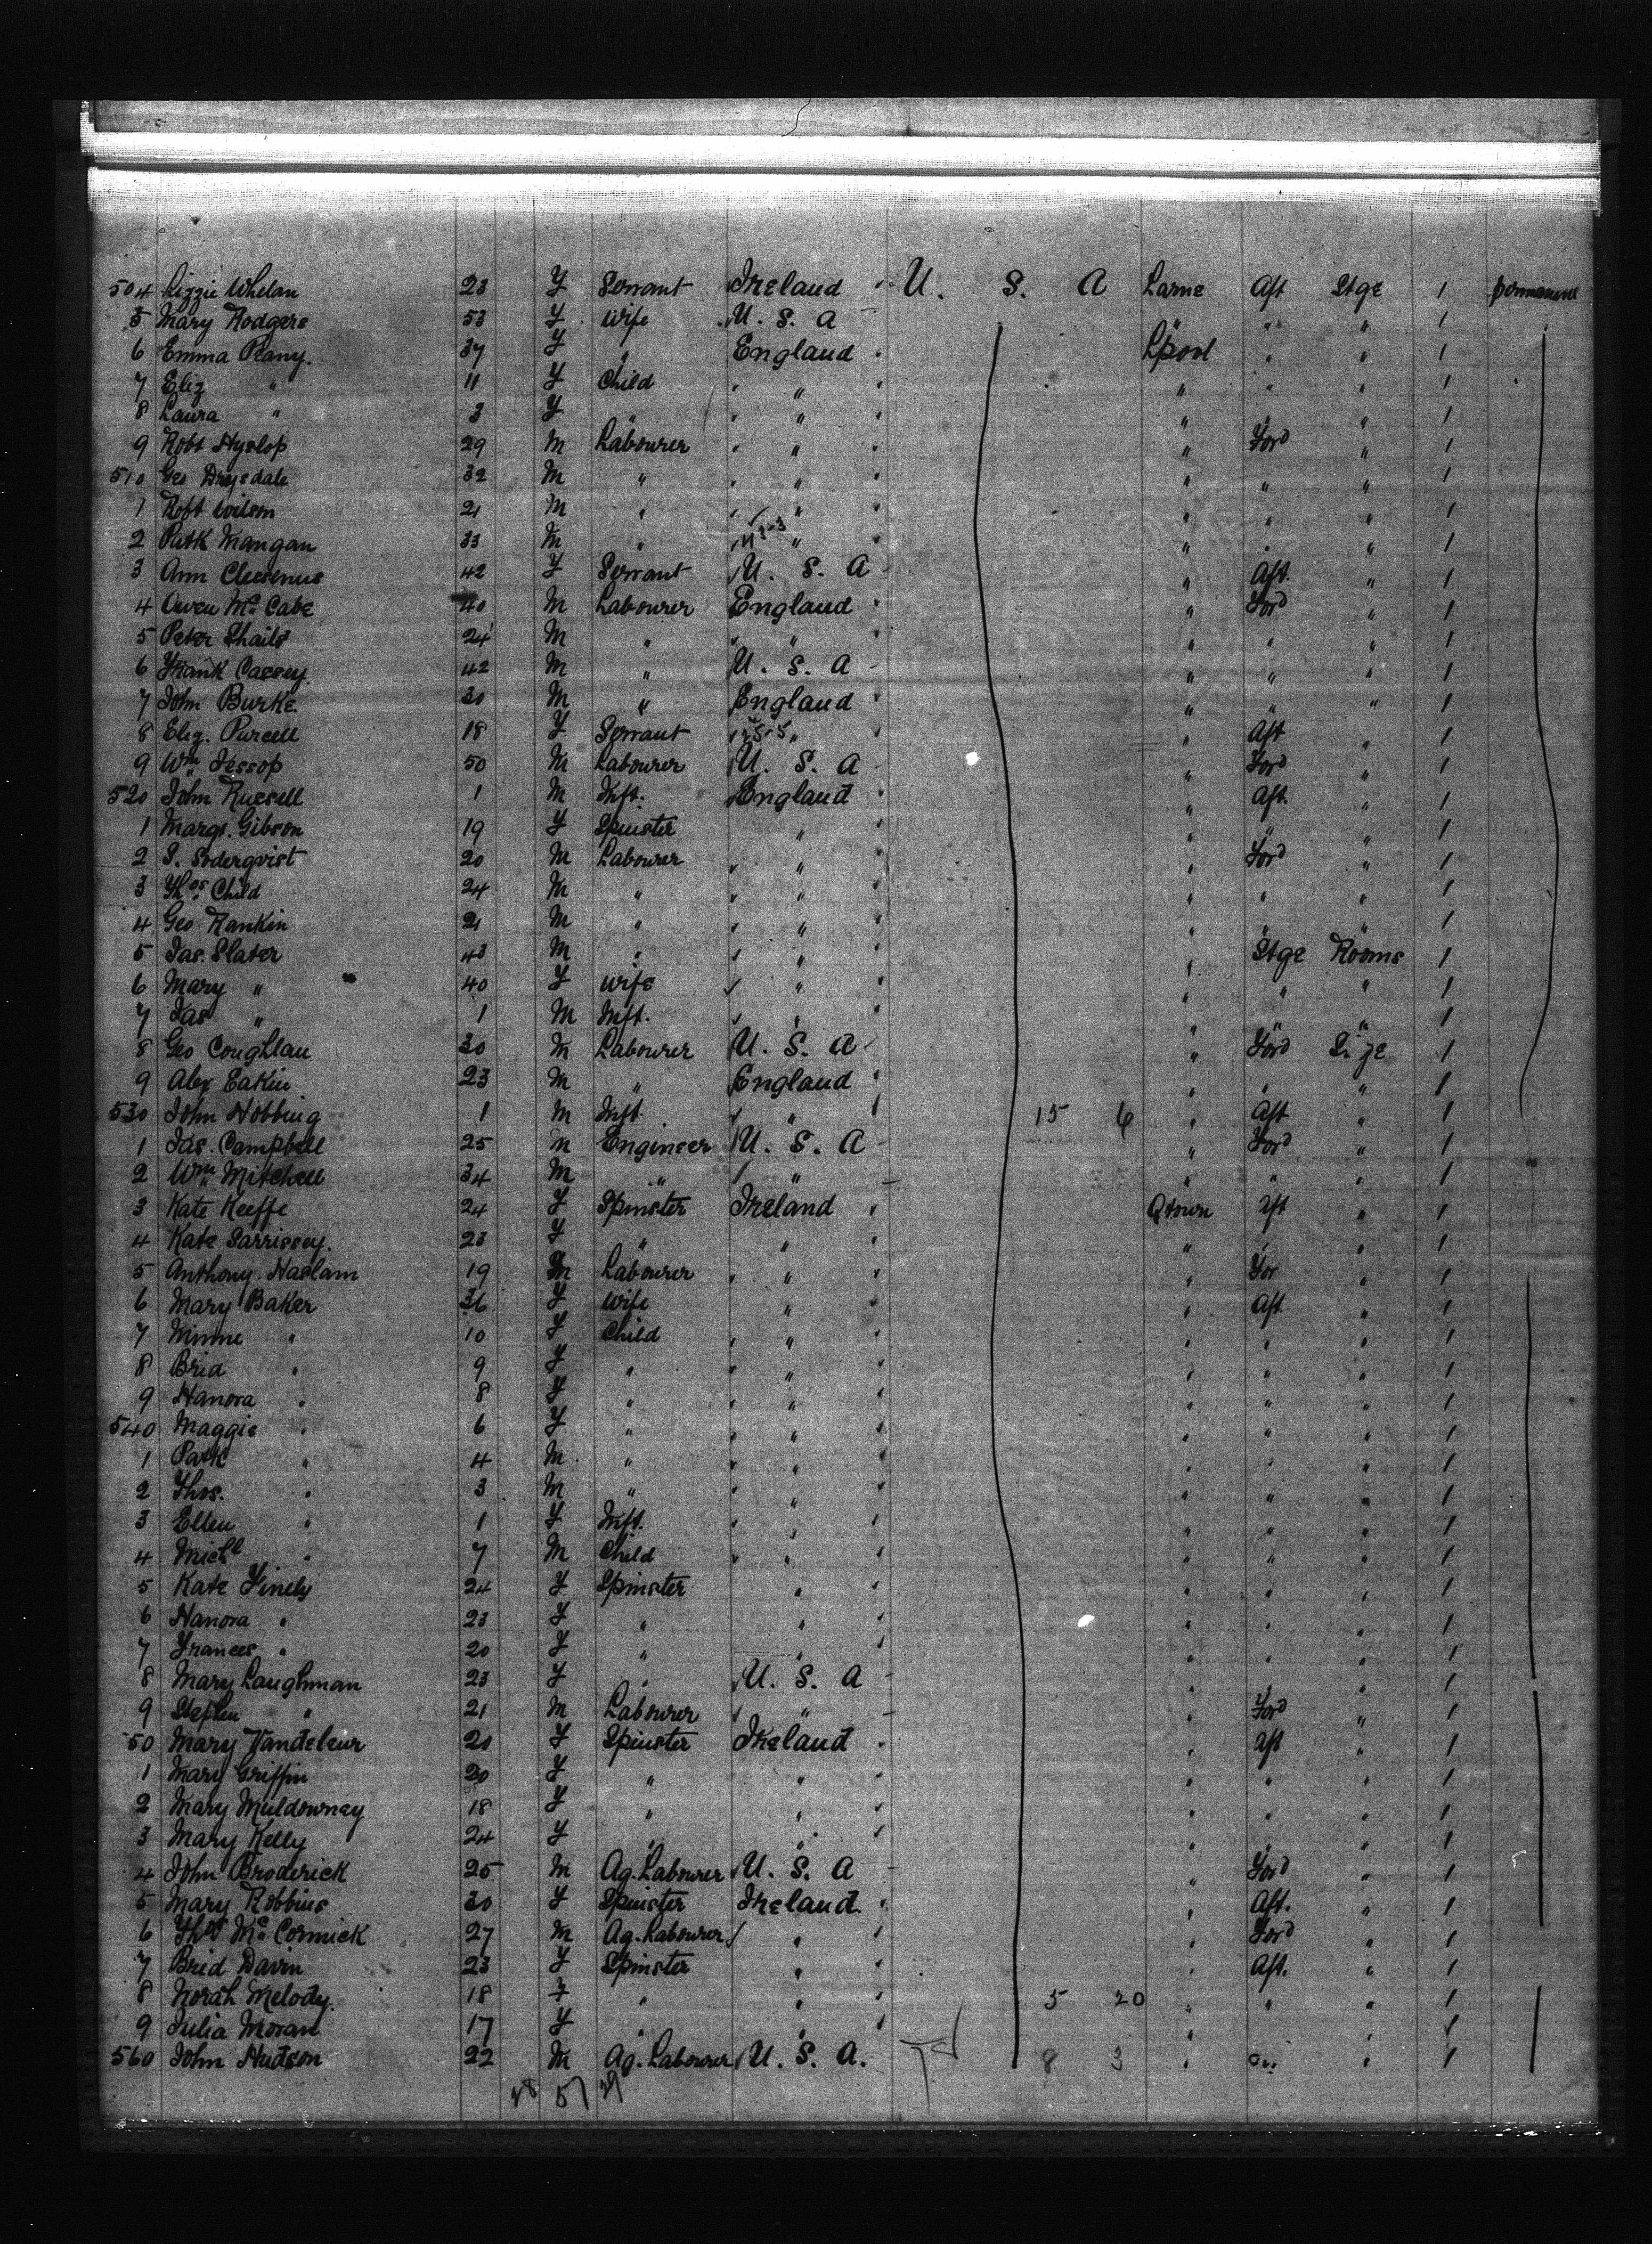 504 Lizzie Whelan 23 F Servant Ireland U. S. A Larne Aft Stge 1 permanent
5 Mary Rodgers 53 F wife U. S. A " " " 1
6 Emma 37 F " England Lpool " " 1
7 Eliz " 11 F Child " " " " 1
8 Laura " 3 F " " " " " 1
9 Robt Hyslop 29 M Labourer " " Ford " 1
510 Geo Drysdale 32 M " " " " " 1
1 Robt Wilson 21 M " " " " " 1
2 Patk Mangan 33 M " " " " " 1
3 Ann 42 F Servant U. S. A " Aft. " 1
4 Owen Mc Cabe 40 M Labourer England " Ford " 1
5 Peter Shails 24 M " " " " " 1
6 Frank Cassey 42 M " U. S. A " " " 1
7 John Burke 30 M " England " " " 1
8 Eliz. Purcell 18 F Servant " " Aft " 1
9 Wm Jessop 50 M Labourer U. S. A " Ford " 1
520 John Russell 1 M Inft. England " Aft. " 1
1 Margt. Gibson 19 F Spinster " " " " 1
2 S. Soderqvist 20 M Labourer " " Ford " 1
3 Thos Child 24 M " " " " " 1
4 Geo Rankin 21 M " " " " " 1
5 Jas. Slater 43 M " " " Stge Rooms 1
6 Mary " 40 F wife " " " " 1
7 Jas " 1 M Inft. " " " " 1
8 Geo Coughlan 30 M Labourer U. S. A " Ford Stge 1
9 Alex Eakin 23 M " England " " " 1
530 John Hobbing 1 M Inft. " 15 6 " Aft " 1
1 Jas. Campbell 25 M Engineer U. S. A " Ford " 1
2 Wm Mitchell 34 M " " " " " 1
3 Kate Keeffe 24 F Spinster Ireland Qtown Aft " 1
4 Kate Sarrissey. 23 F " " " " " 1
5 Anthony. Haslam 19 M Labourer " " For " 1
6 Mary Baker 36 F wife " " Aft " 1
7 Winnie " 10 F Child " " " " 1
8 Brid " 9 F " " " " " 1
9 Hanora " 8 F " " " " " 1
540 Maggie " 6 F " " " " " 1
1 Patk " 4 M " " " " " 1
2 Thos. " 3 M " " " " " 1
3 Ellen " 1 F Inft. " " " " 1
4 Michl " 7 M Child " " " " 1
5 Kate Finely 24 F Spinster " " " " 1
6 Hanora " 23 F " " " " " 1
7 Frances " 20 F " " " " " 1
8 Mary Laughman 23 F " U. S. A " " " 1
9 Stephen " 21 M Labourer " " Ford " 1
50 Mary Vandeleur 20 F Spinster Ireland " Aft " 1
1 Mary Griffin 20 F " " " " " 1
2 Mary Muldowney 18 F " " " " " 1
3 Mary Kelly 24 F " " " " " 1
4 John Broderick 25 M Ag. Labourer U. S. A " Ford " 1
5 Mary Robbins 30 F Spinster Ireland " Aft. " 1
6 Thos Mc Cormick 27 M Ag. Labourer " " Ford " 1
7 Brid Davin 23 F Spinster " " Aft. " 1
8 Norah Melody. 18 F " " 5 20 " " " 1
9 Julia Moran 17 F " " " " " 1
560 John Hudson 22 M Ag. Labourer U. S. A. 8 3 " " 1
28 57 29